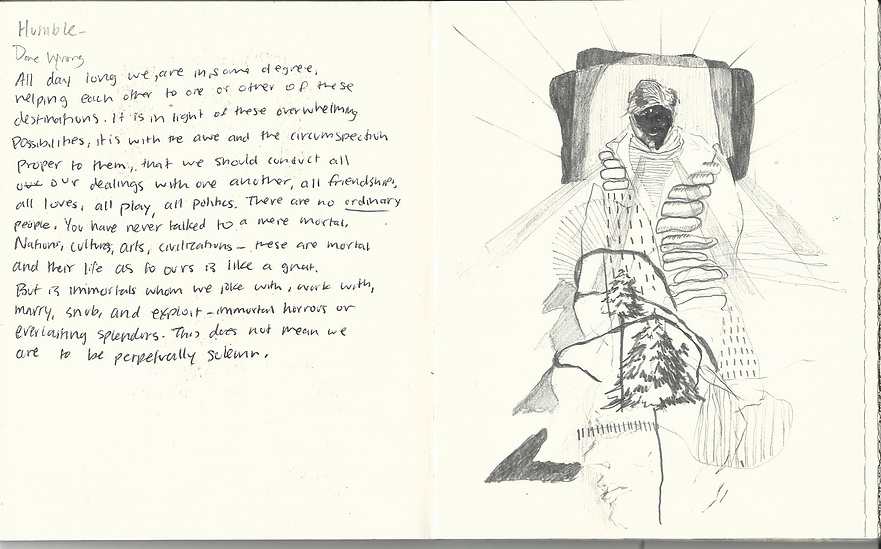 Humble-
Done Wrong
All day long we, are in, some degree,
helping each other to one or other of these
destinations. It is in light of these overwhelming
possibilities, it is with the awe and the circumspection
proper to them, that we should conduct all
our dealings with one another, all friendships,
all loves, all play, all politics. There are no ordinary
people. You have never talked to a mere mortal.
Nations, culture, arts, civilizations - these are mortal
and their life as to ours is like a gnat.
But is immortals whom we joke with, work with,
marry, snub, and exploit - immortal horrors or
everlasting splendors. This does not mean we
are to be perpetually solemn.